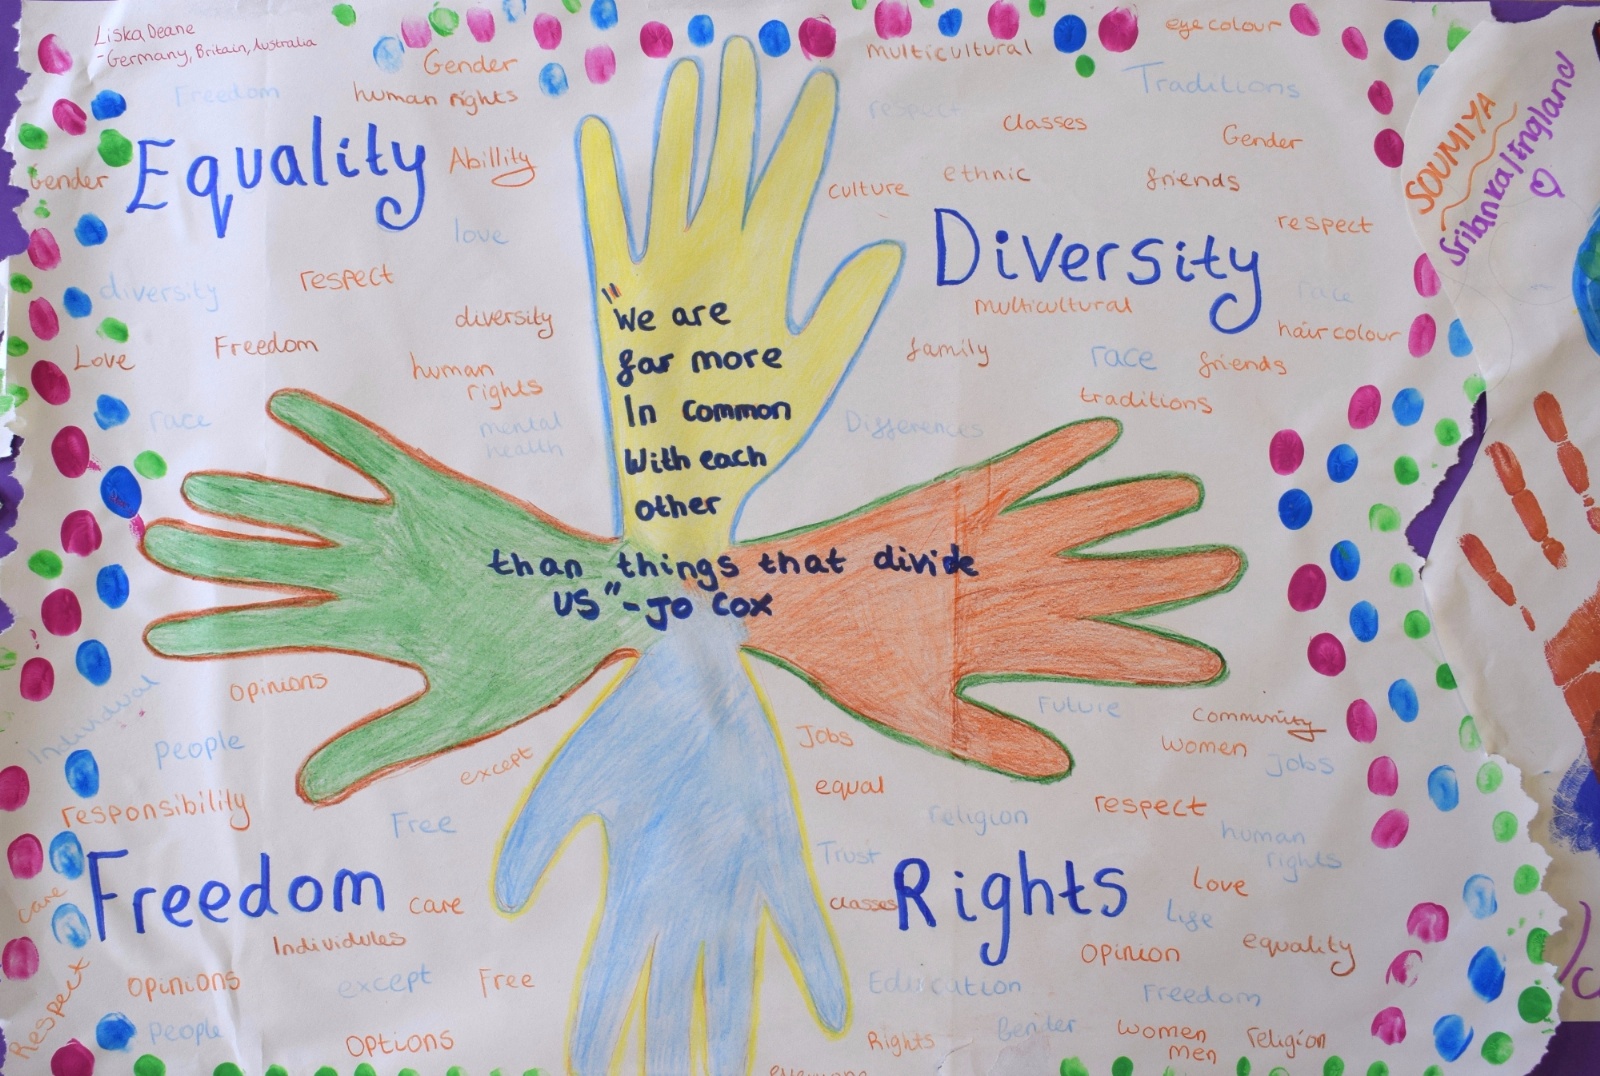 Liska Deane
-Germany, Britain, Australia
Freedom
Gender
human rights
Equality
Abillity
Gender
love
diversity
respect
diversity
Freedom
Love
human
rights
race
mental
health
multicultural
eye colour
Traditions
respect
classes
Gender
culture
ethnic
friends
respect
Diversity
multicultural
race
hair colour
family
race
friends
traditions
Differences
SOUMIYA
Srilanka/England
"We are
far more
In common
With each
other
than things that divide
us" - Jo Cox
Opinions
Individual
people
except
responsibility
Free
Freedom
care
care
Individules
Opinions
except
Free
Respect
people
Options
Future
Community
Jobs
women
Jobs
equal
respect
religion
human
rights
Trust
Rights
Love
classes
Life
Opinion
equality
Education
Freedom
Rights
Gender
women
men
religion
everyone